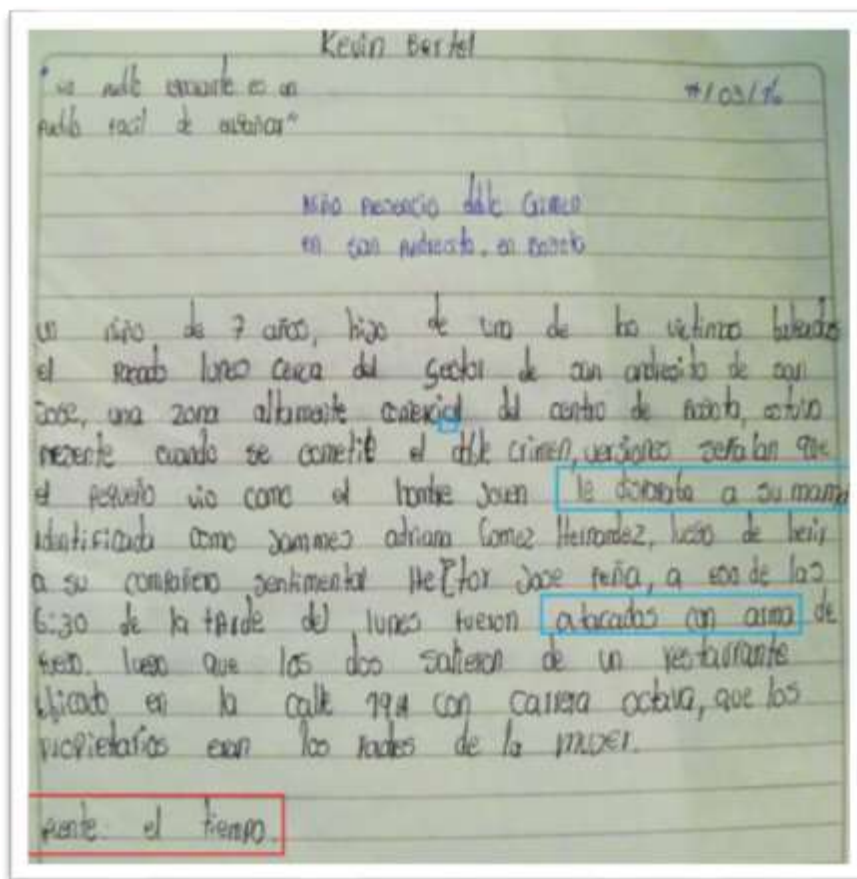 Kevin Bertel
"un pueblo ignorante es un
pueblo facil de engañar"
/03/16
Niño presencio doble Crimen
en san Andresito, en Bogota
un niño de 7 años, hijo de una de las victimas baleadas
el pasado lunes cerca del sector de san andresito de san
Jose, una zona altamente comercial del centro de Bogota, estuvo
presente cuando se cometió el doble crimen, versiones señalan que
el pequeño vio como el hombre joven le disparaba a su mama
identificada como Jammes adriana Gomez Hernandez, luego de herir
a su compañero sentimental HeCtor Jose Peña, a eso de las
6:30 de la tarde del lunes fueron atacados con arma de
fuego. luego que los dos salieron de un restaurante
ubicado en la calle 19 con carrera octava, que los
propietarios eran los padres de la mujer.
fuente: el tiempo.